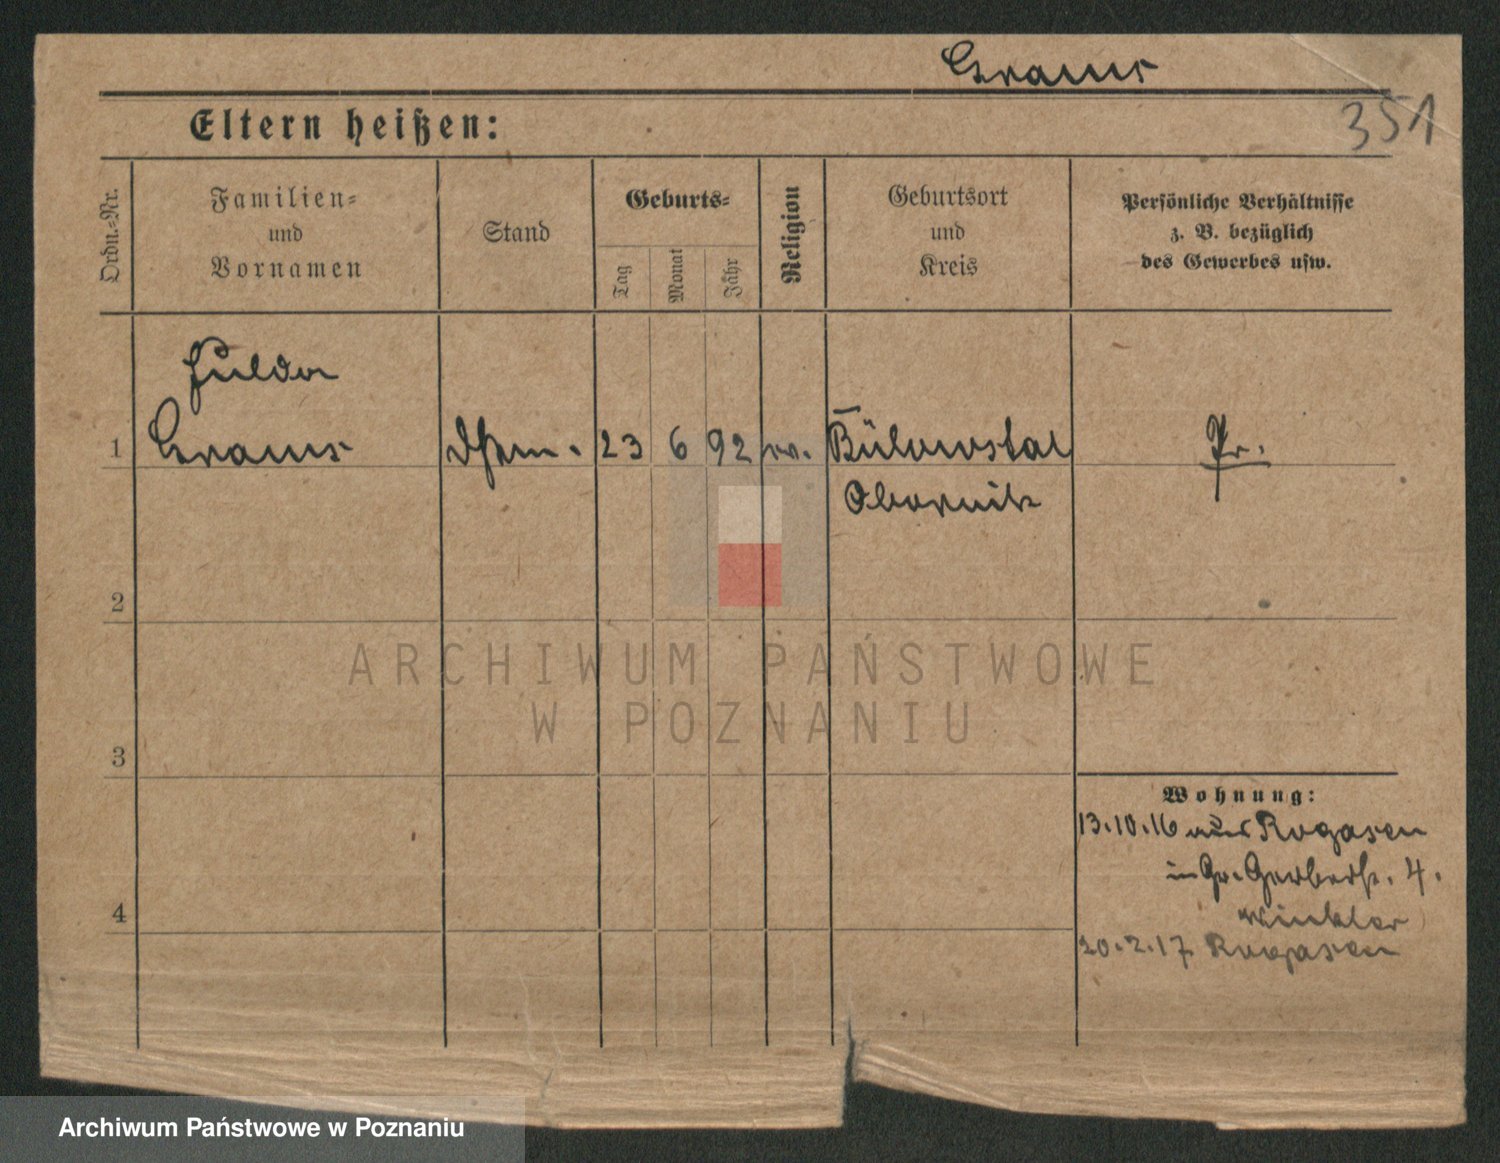 Grams
351
Eltern heißen:
Ordn.-Nr.
Familien-
und
Vornamen
Stand
Geburts-
Tag
Monat
Jahr
Religion
Geburtsort
und
Kreis
Persönliche Verhältnisse
z. B. bezüglich
des Gewerbes usw.
Hulda
1 Grams 23 6 92 ev. Bülowstal Pr.
Obornik
2
ARCHIWUM PAŃSTWOWE
W POZNANIU
3
Wohnung:
13.10.16 aus Rogasen
in Gr. Gerberstr. 4.
Winkler
4
20.2.17 Rogasen
Archiwum Państwowe w Poznaniu